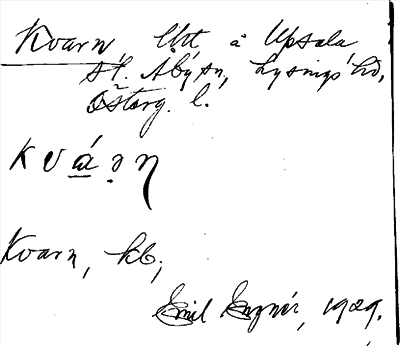 Kvarn, litt, å Upsala,
st. Åby sn, Lysings hd,
Österg. l.
kvá̲ṇη
Kvarn, kb;
Emil 1929.